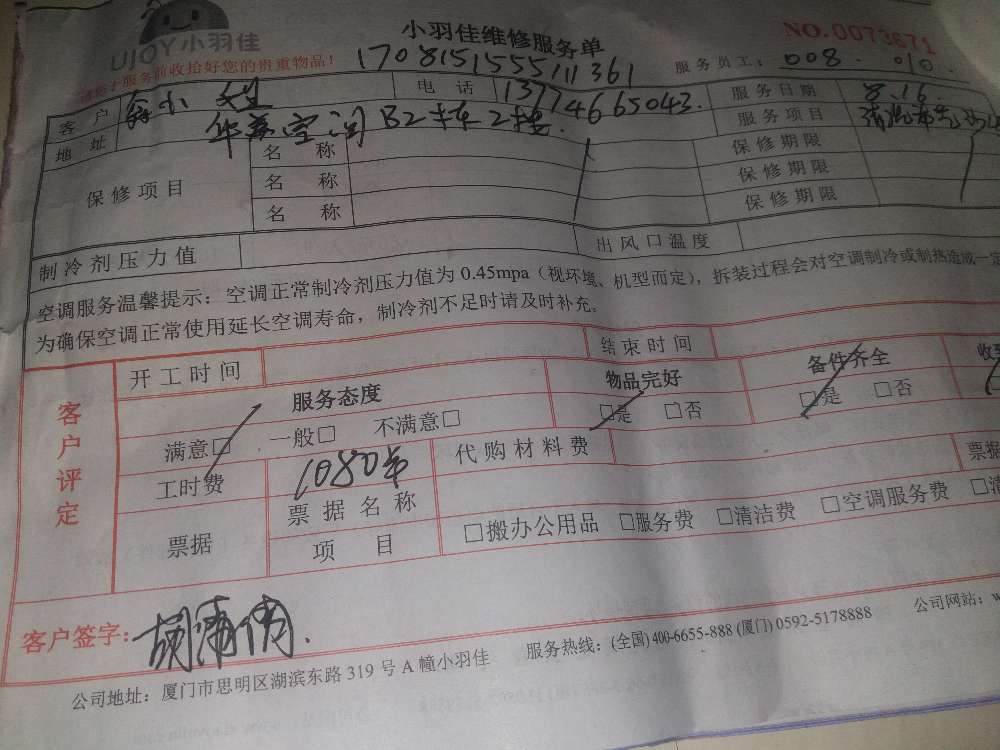 UJOY小羽佳
小羽佳维修服务单
NO.0073671
请您于服务前收拾好您的贵重物品！
1708151555111361
服务员工：008. 010.
客户 电话 13774665043. 服务日期 8.16.
地址 B2栋2楼. 服务项目
保修项目 名称 保修期限
名称 保修期限
名称 保修期限
制冷剂压力值 出风口温度
空调服务温馨提示：空调正常制冷剂压力值为0.45mpa（视环境、机型而定），拆装过程会对空调制冷或制热造成一定
为确保空调正常使用延长空调寿命，制冷剂不足时请及时补充。
客户评定
开工时间 结束时间
服务态度 物品完好 备件齐全 收
满意□ 一般□ 不满意□ □是 □否 □是 □否
工时费 1080 代购材料费
票据 票据名称 □搬办公用品 □服务费 □清洁费 □空调服务费 □清
项目 票据
客户签字：
公司地址：厦门市思明区湖滨东路319号A幢小羽佳 服务热线：(全国) 400-6655-888 (厦门) 0592-5178888 公司网站：w